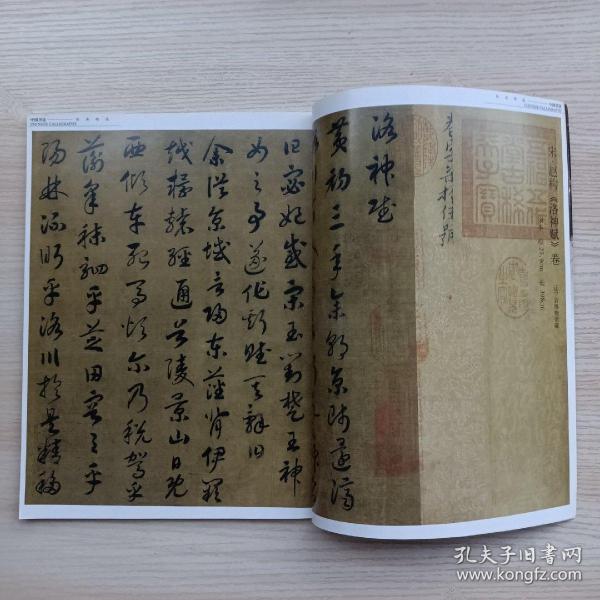 宋 赵构《洛神赋》卷
洛神賦
黄初三年余朝京師還濟
曰宓妃感宋玉對楚王神
女之事遂作斯賦其辭曰
余從京域言歸東藩背伊闕
越轘轅經通谷陵景山日既
西傾車殆馬煩尔乃税駕乎
蘅皋秣駟乎芝田容與乎
陽林流眄乎洛川於是精移
中国书法
CHINESE CALLIGRAPHY
孔夫子旧书网
www.kongfz.com